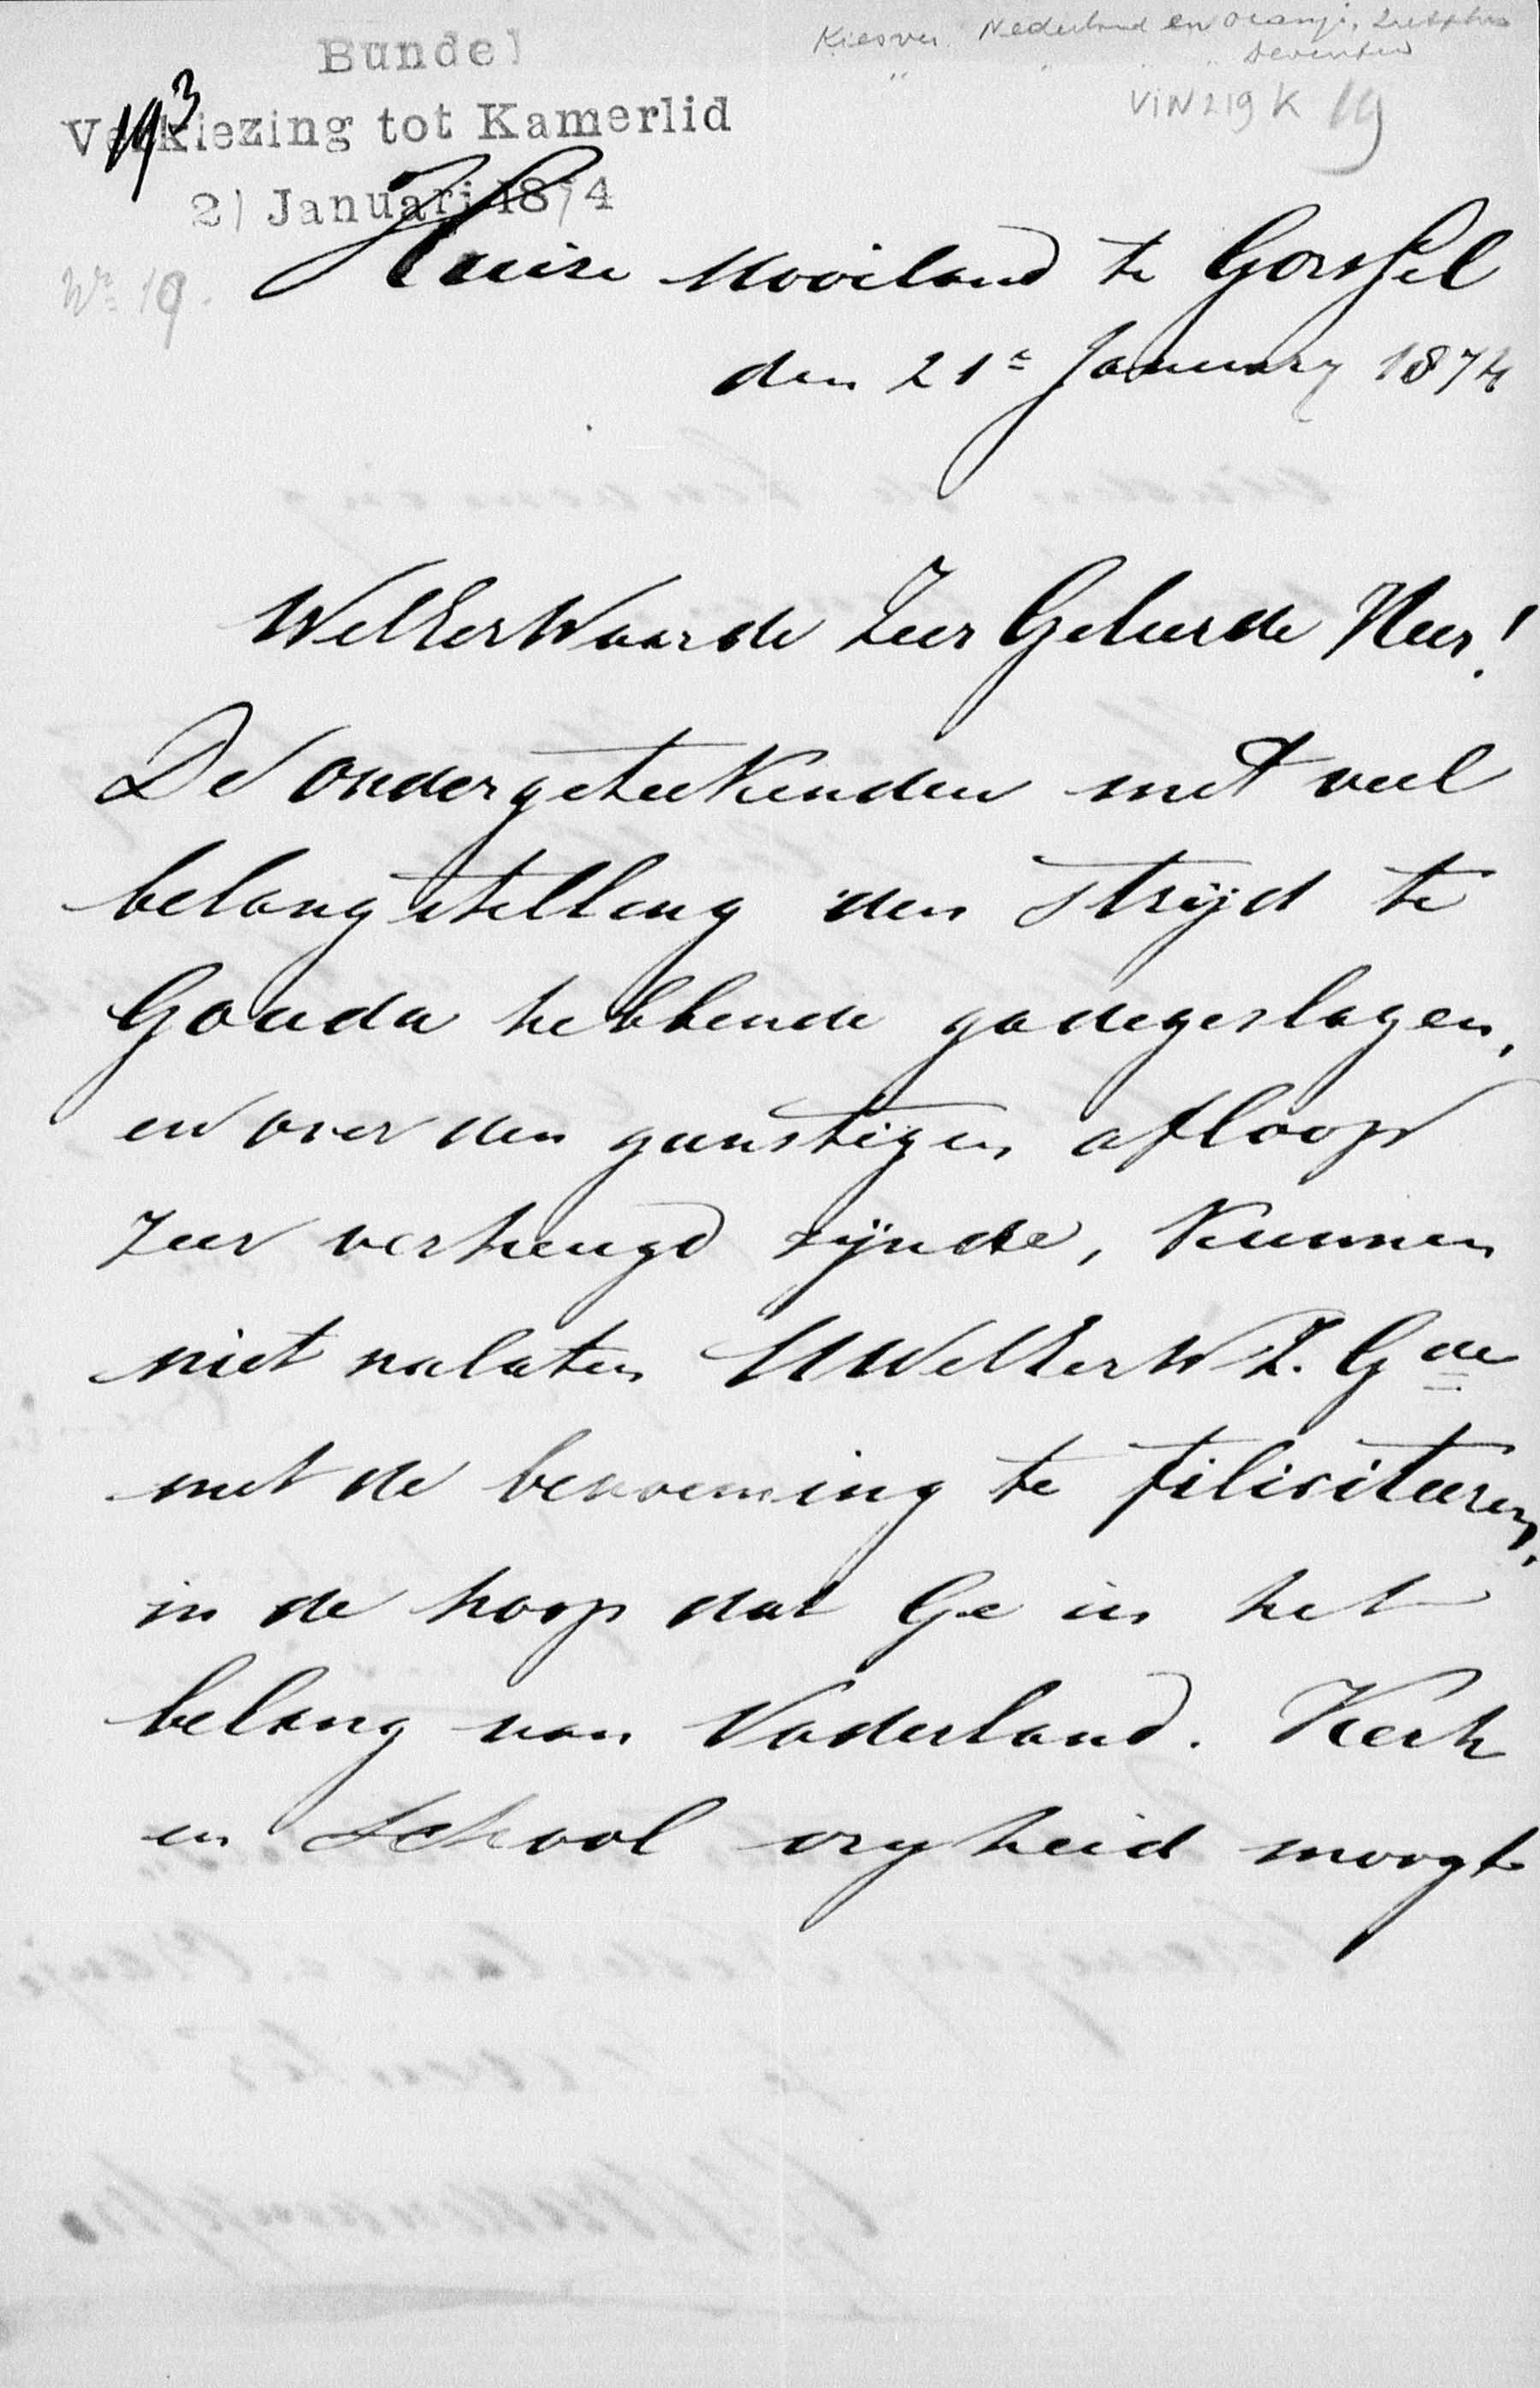 Bundel
Verkiezing tot Kamerlid
21 Januari 1874
193
Kiesver. Nederland en Oranje, Zutphen
" " " " Deventer
VIN219K 19
No 19.
Huize Mooiland te Gorssel
den 21e January 1874
WelEerWaarde Zeer Geleerde Heer!
De ondergeteekenden met veel
belangstelling den strijd te
Gouda hebbende gadegeslagen,
en over den gunstigen afloop
zeer verheugd zijnde, kunnen
niet nalaten UWelEerW Z. Gde
met de benoeming te filiciteeren,
in de hoop dat Ge in het
belang van Vaderland. Kerk
en School vryheid moogt